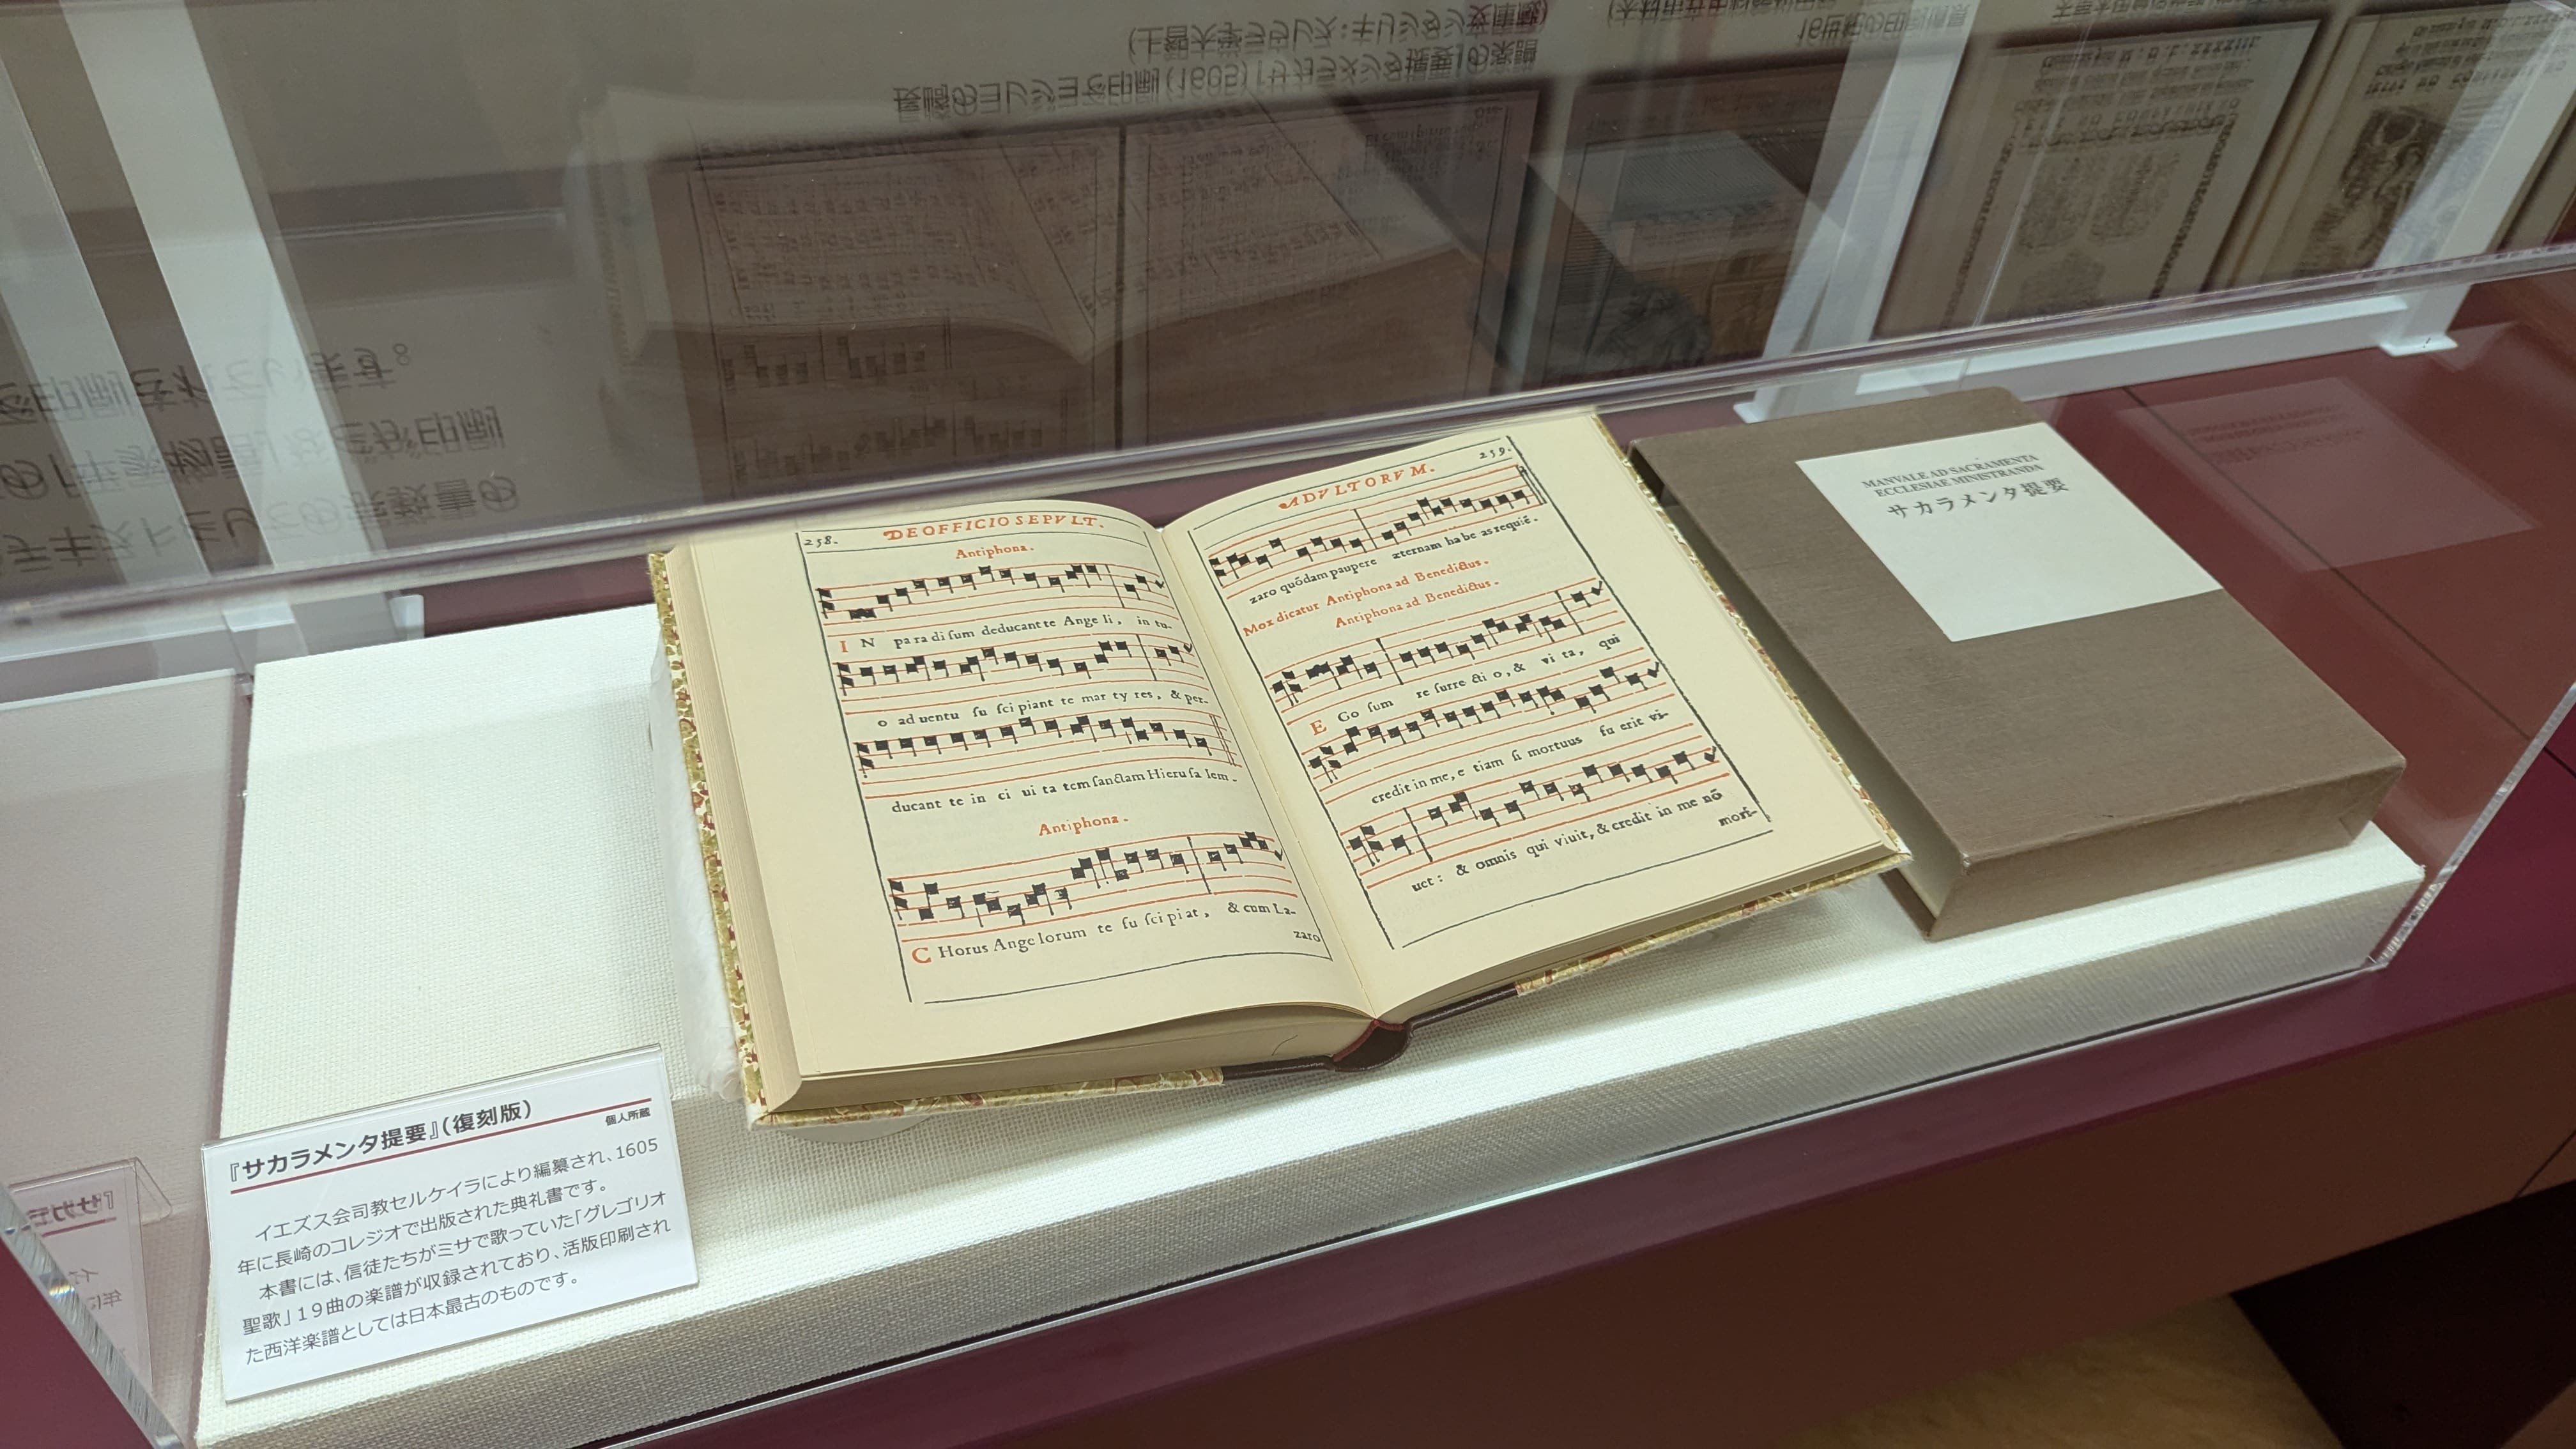 238.
DE OFFICIO SEPVLT.
Antiphona.
IN pa ra di ſum deducant te Ange li, in tu-
o ad uentu ſu ſci piant te mar ty res, & per-
ducant te in ci ui ta tem ſanctam Hieru ſa lem.
Antiphona.
CHorus Ange lorum te ſu ſci pi at, & cum La-
zaro
ADVLTORVM.
239.
zaro quódam paupere æternam ha be as requié.
Mox dicatur Antiphona ad Benedictus.
Antiphona ad Benedictus.
EGo ſum re ſurre cti o, & vi ta, qui
credit in me, e tiam ſi mortuus fu erit vi-
uet: & omnis qui viuit, & credit in me nō
mori-
MANVALE AD SACRAMENTA
ECCLESIAE MINISTRANDA
サカラメンタ提要
『サカラメンタ提要』(復刻版)
個人所蔵
イエズス会司教セルケイラにより編纂され、1605
年に長崎のコレジオで出版された典礼書です。
本書には、信徒たちがミサで歌っていた「グレゴリオ
聖歌」19曲の楽譜が収録されており、活版印刷され
た西洋楽譜としては日本最古のものです。